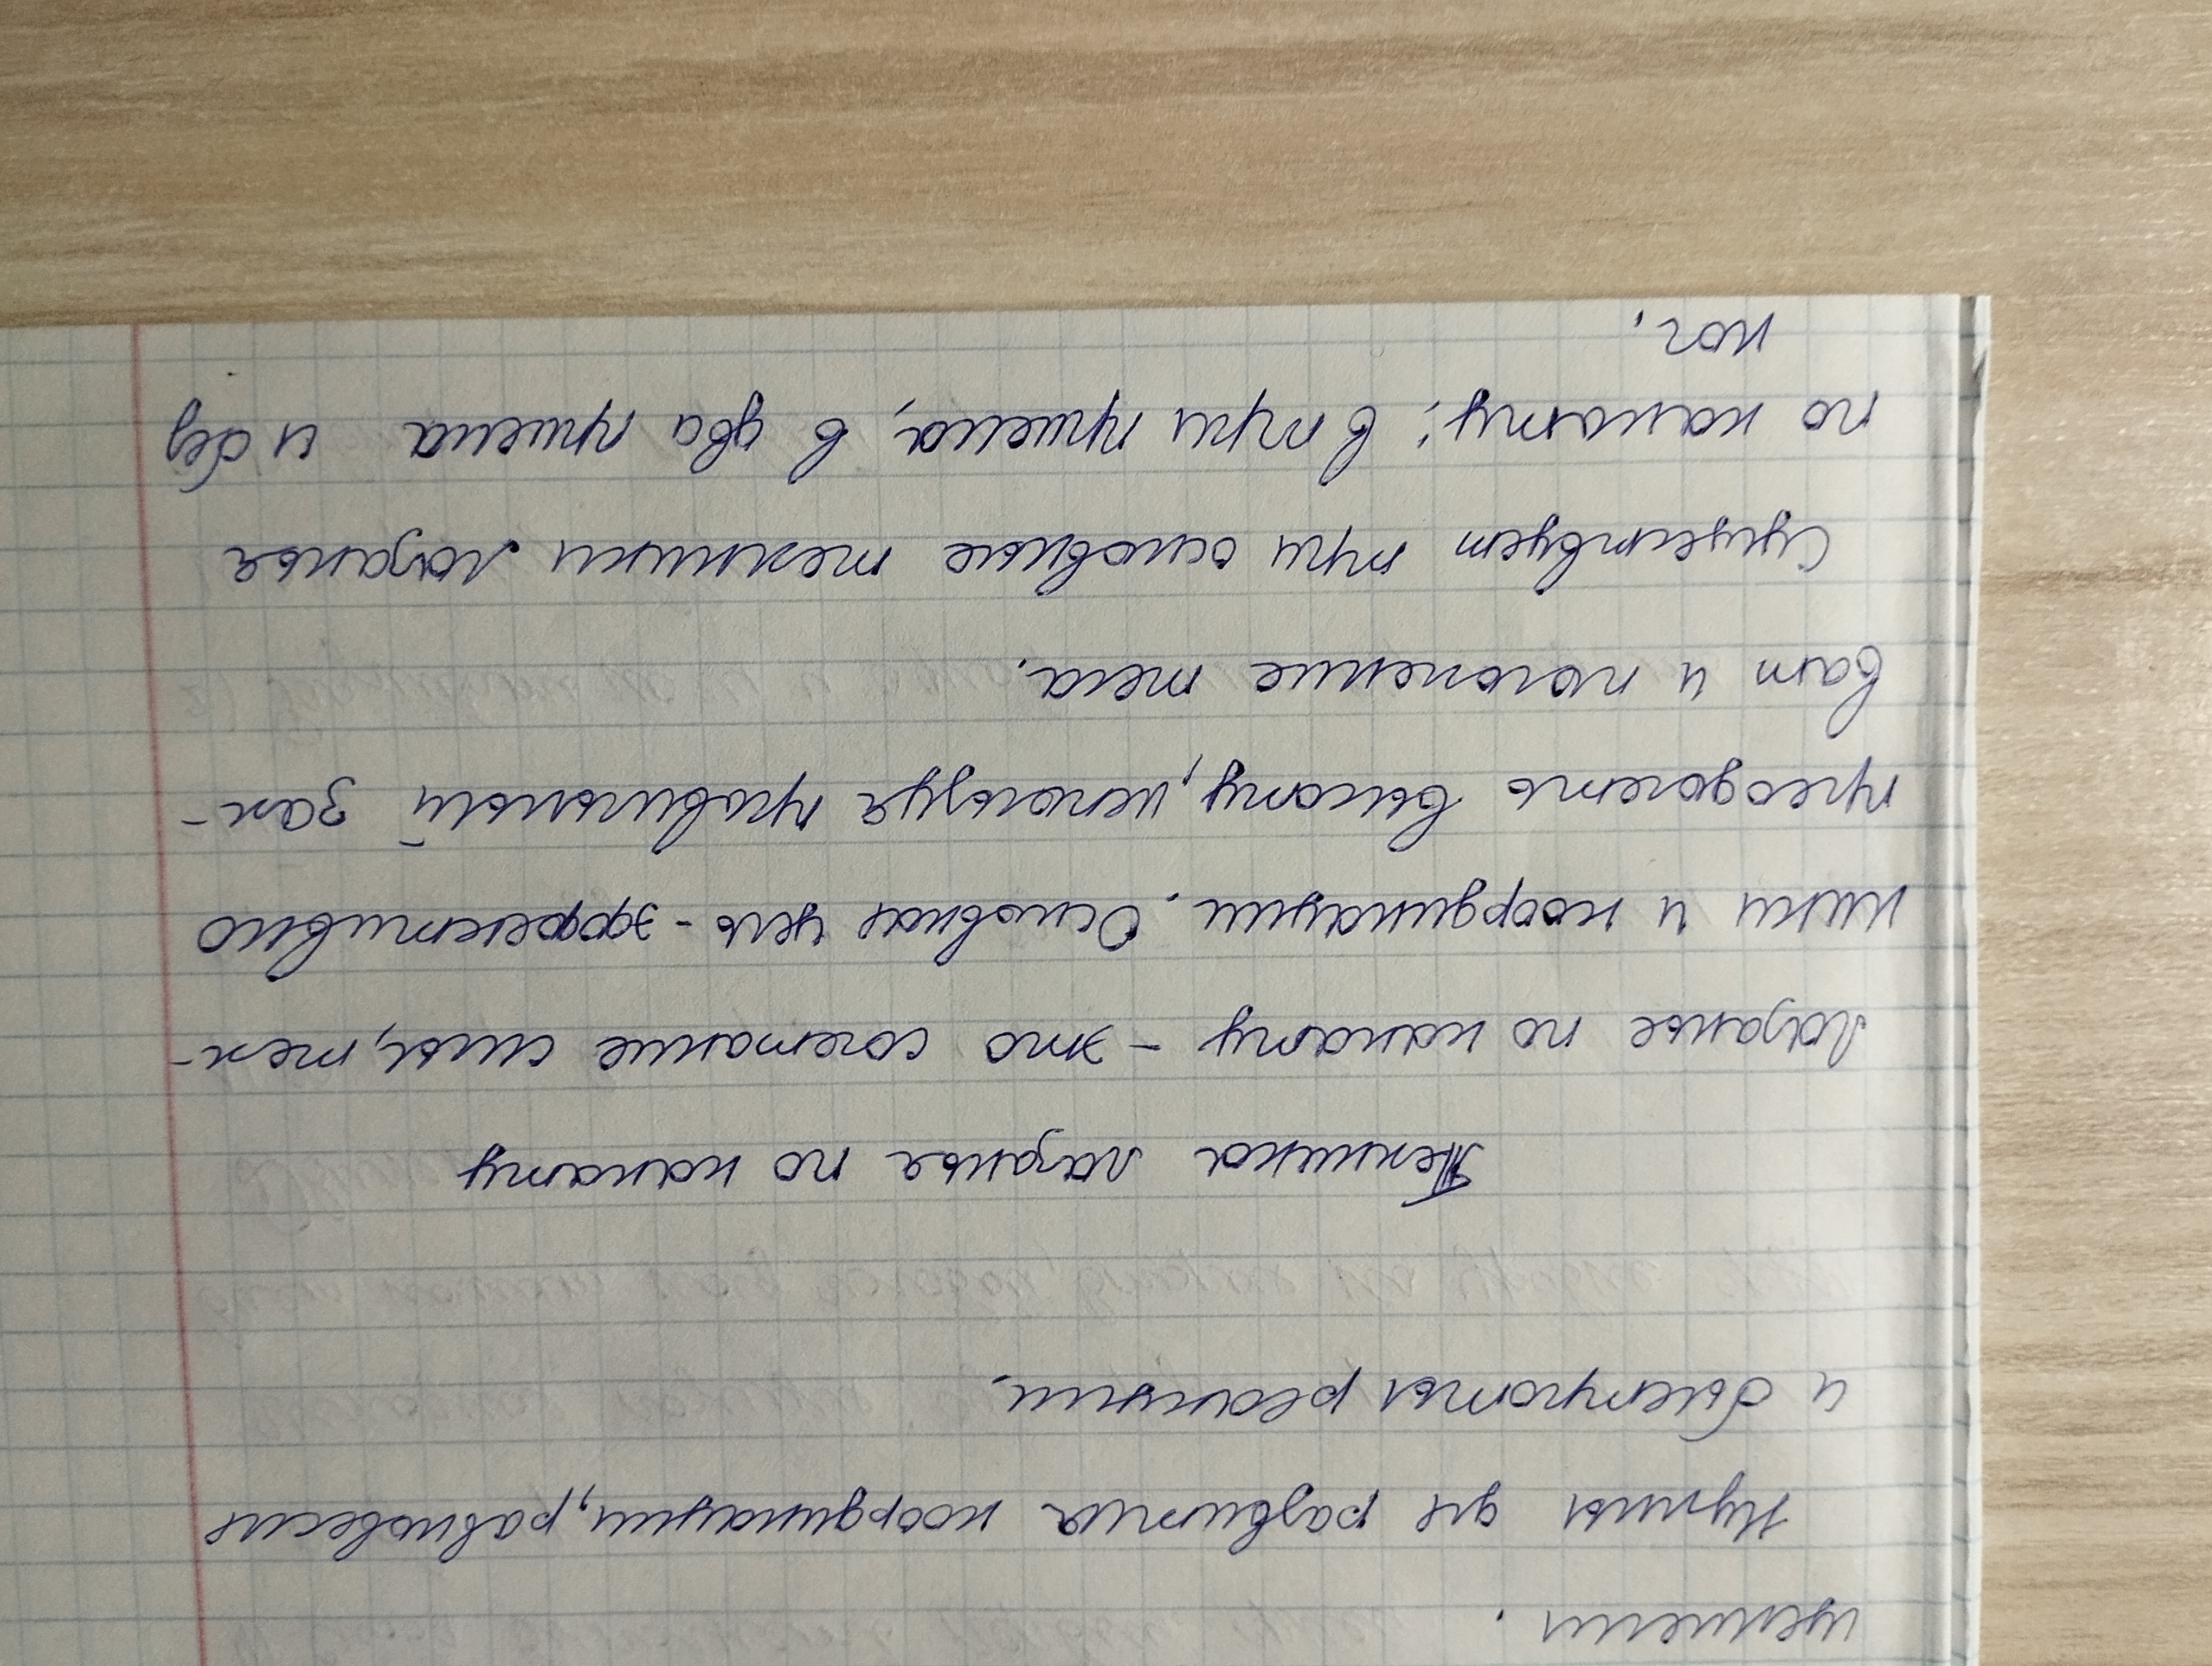 Нужны для развития координации, равновесия
и быстроты реакции.
Техника лазанья по канату
Лазанье по канату - это сочетание силы, тех-
ники и координации. Основная цель - эффективно
преодолеть высоту, используя правильный зах-
ват и положение тела.
Существует три основные техники лазанья
по канату: в три приема, в два приема и без
ног.